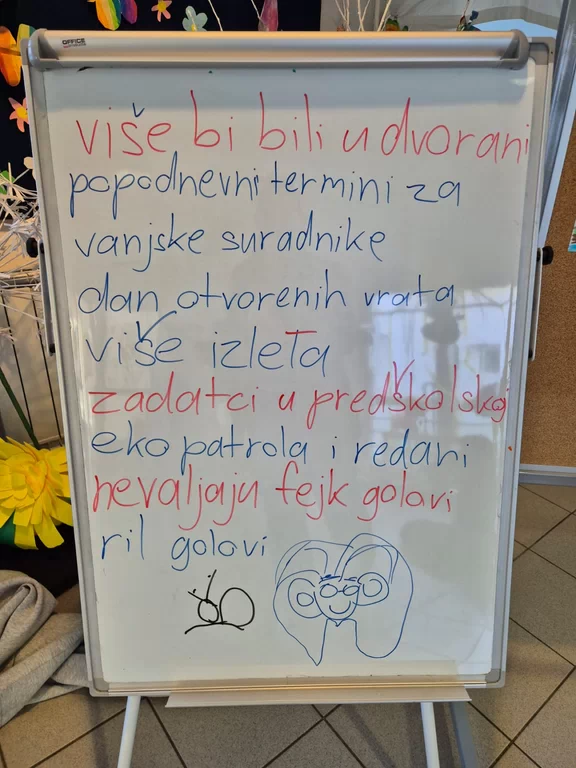 OFFICE
više bi bili u dvorani
popodnevni termini za
vanjske suradnike
dan otvorenih vrata
više izleta
zadatci u predškolskoj
eko patrola i redari
nevaljaju fejk golovi
ril golovi